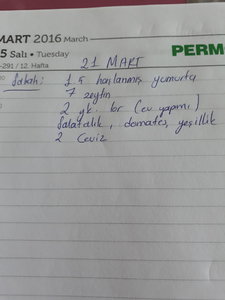 MART 2016 March
5 Salı • Tuesday
-291 / 12. Hafta
PERM
21 MART
Sabah: 1.5 haşlanmış yumurta
7 zeytin
2 yk. br (ev yapımı)
Salatalık, domates, yeşillik
2 Ceviz